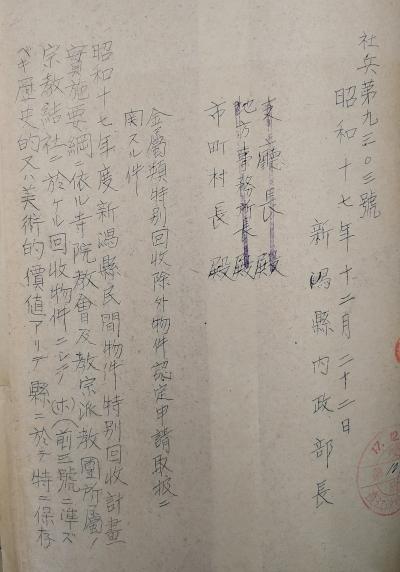 社兵第九三〇三號
昭和十七年十二月二十二日
新潟縣内政部長
支廳長殿
地方事務所長殿
市町村長殿
金屬類特別回收除外物件認定申請取扱ニ
関スル件
昭和十七年度新潟縣民間物件特別回收計畫
實施要綱ニ依ル寺院教會及教宗派教團所屬ノ
宗教結社ニ於ケル回收物件ニシテ(ホ)(前三號ニ準ズ
ベキ歴史的又ハ美術的價値アリテ縣ニ於テ特ニ保存
17.12